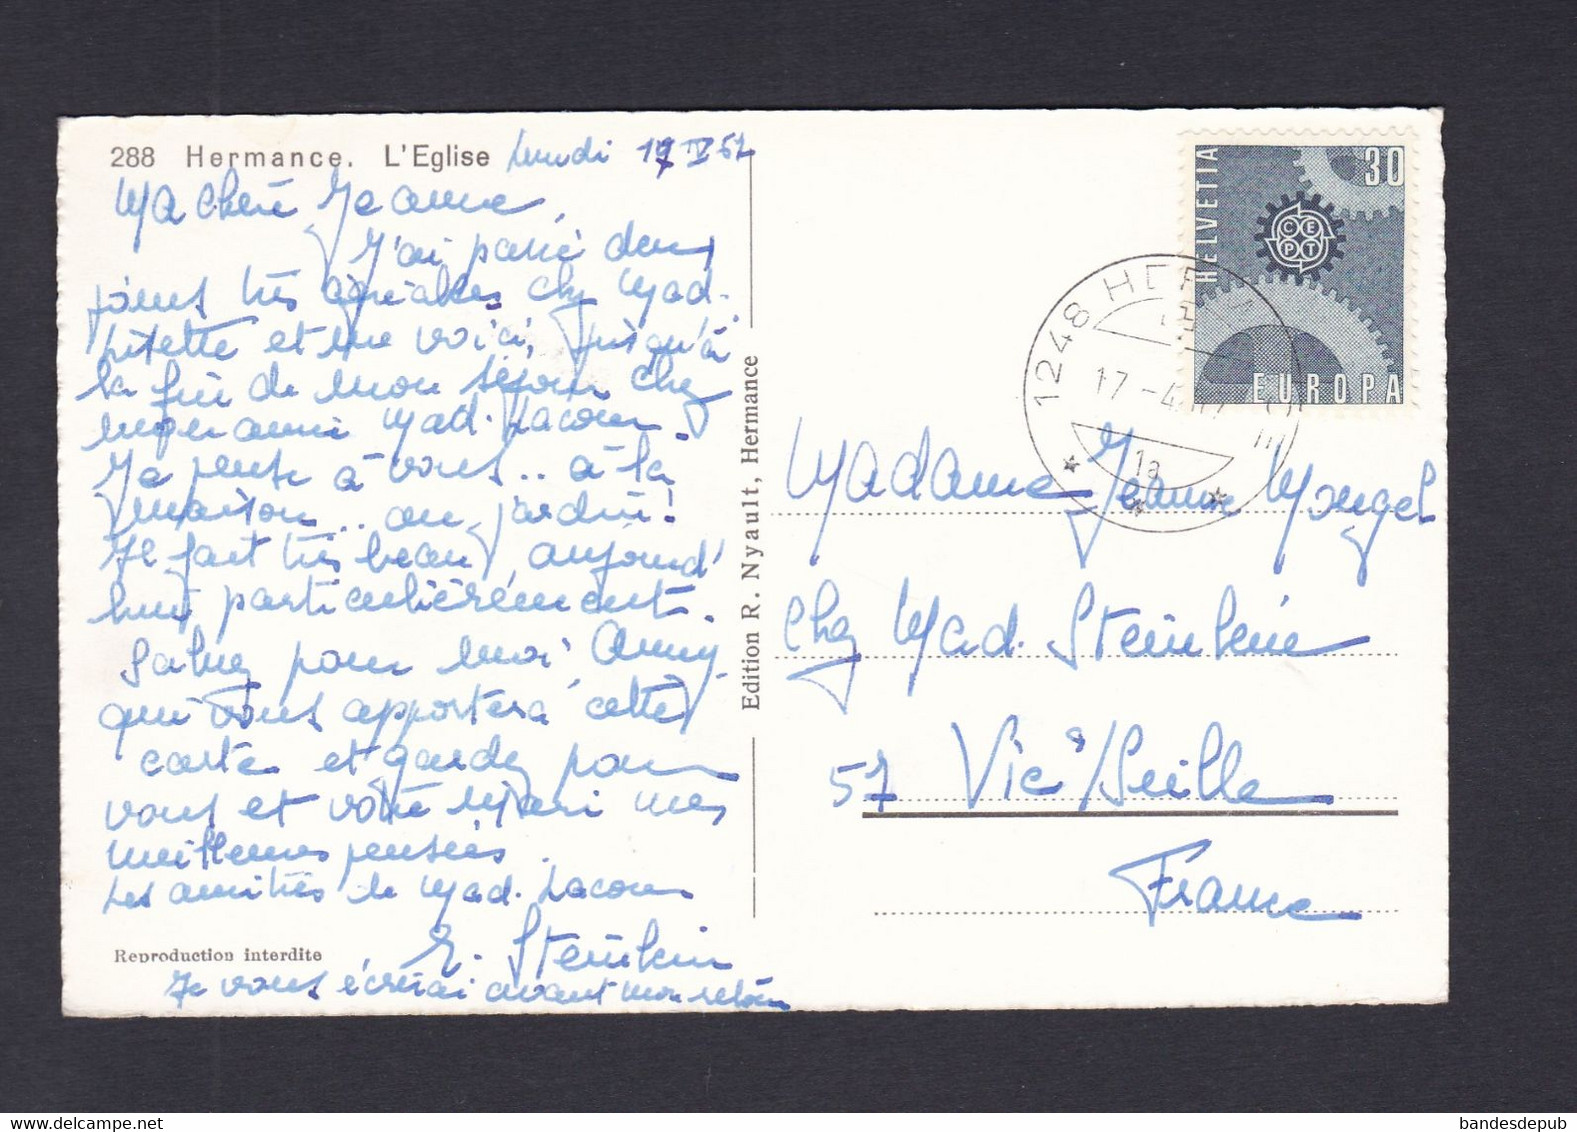 288 Hermance. L'Eglise lundi 17 IV 67
Ma chère Jeanne,
J'ai passé deux
jours très agréables chez Mad.
Pitette et me voici, jusqu'à
la fin de mon séjour chez
mon amie Mad. Lacour.
Je pense à vous.. à la
maison.. au jardin!
Il fait très beau, aujourd'
hui particulièrement.
Saluez pour moi Anny
qui vous apportera cette
carte et gardez pour
vous et votre Mari mes
meilleures pensées.
Les amitiés de Mad. Lacour
E. Steinlein
Reproduction interdite
Je vous écrirai avant mon retour
Edition R. Nyault, Hermance
HELVETIA
30
CEPT
EUROPA
1248 HER
17 -4
1a
Madame Jeanne Mongel
chez Mad. Steinlein
57 Vic s/Seille
France
bandesdepub